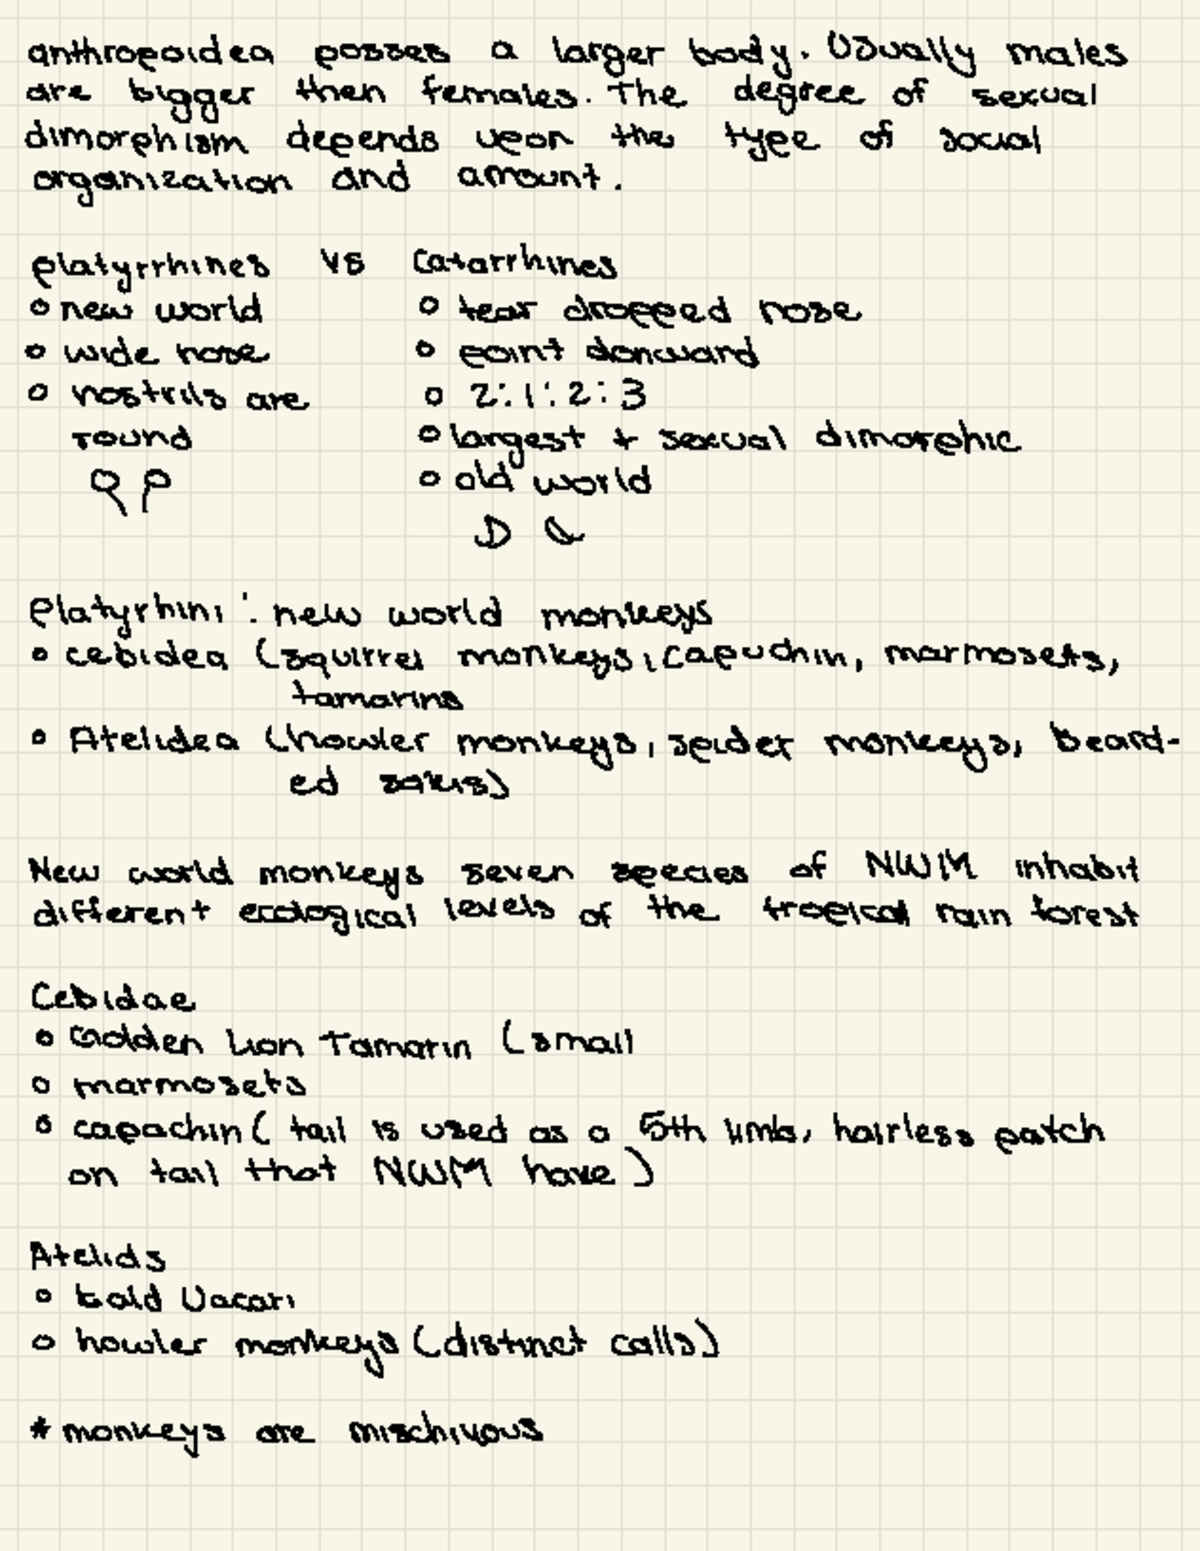 anthropoidea posses a larger body. Usually males
are bigger then females. The degree of sexual
dimorphism depends upon the type of social
organization and amount.
platyrrhines vs Catarrhines
o new world o tear dropped nose
o wide nose o point donward
o nostrils are o 2:1:2:3
round o largest + sexual dimorphic
o old world
Platyrhini: new world monkeys
o cebidea (squirrel monkeys, capuchin, marmosets,
tamarins
o Atelidea (howler monkeys, spider monkeys, beard-
ed sakis)
New world monkeys seven species of NWM inhabit
different ecological levels of the tropical rain forest
Cebidae
o Golden Lion Tamarin (small
o marmosets
o capachin ( tail is used as a 5th limb, hairless patch
on tail that NWM have)
Atelids
o bald Uacari
o howler monkeys (distinct calls)
* monkeys are mischivous